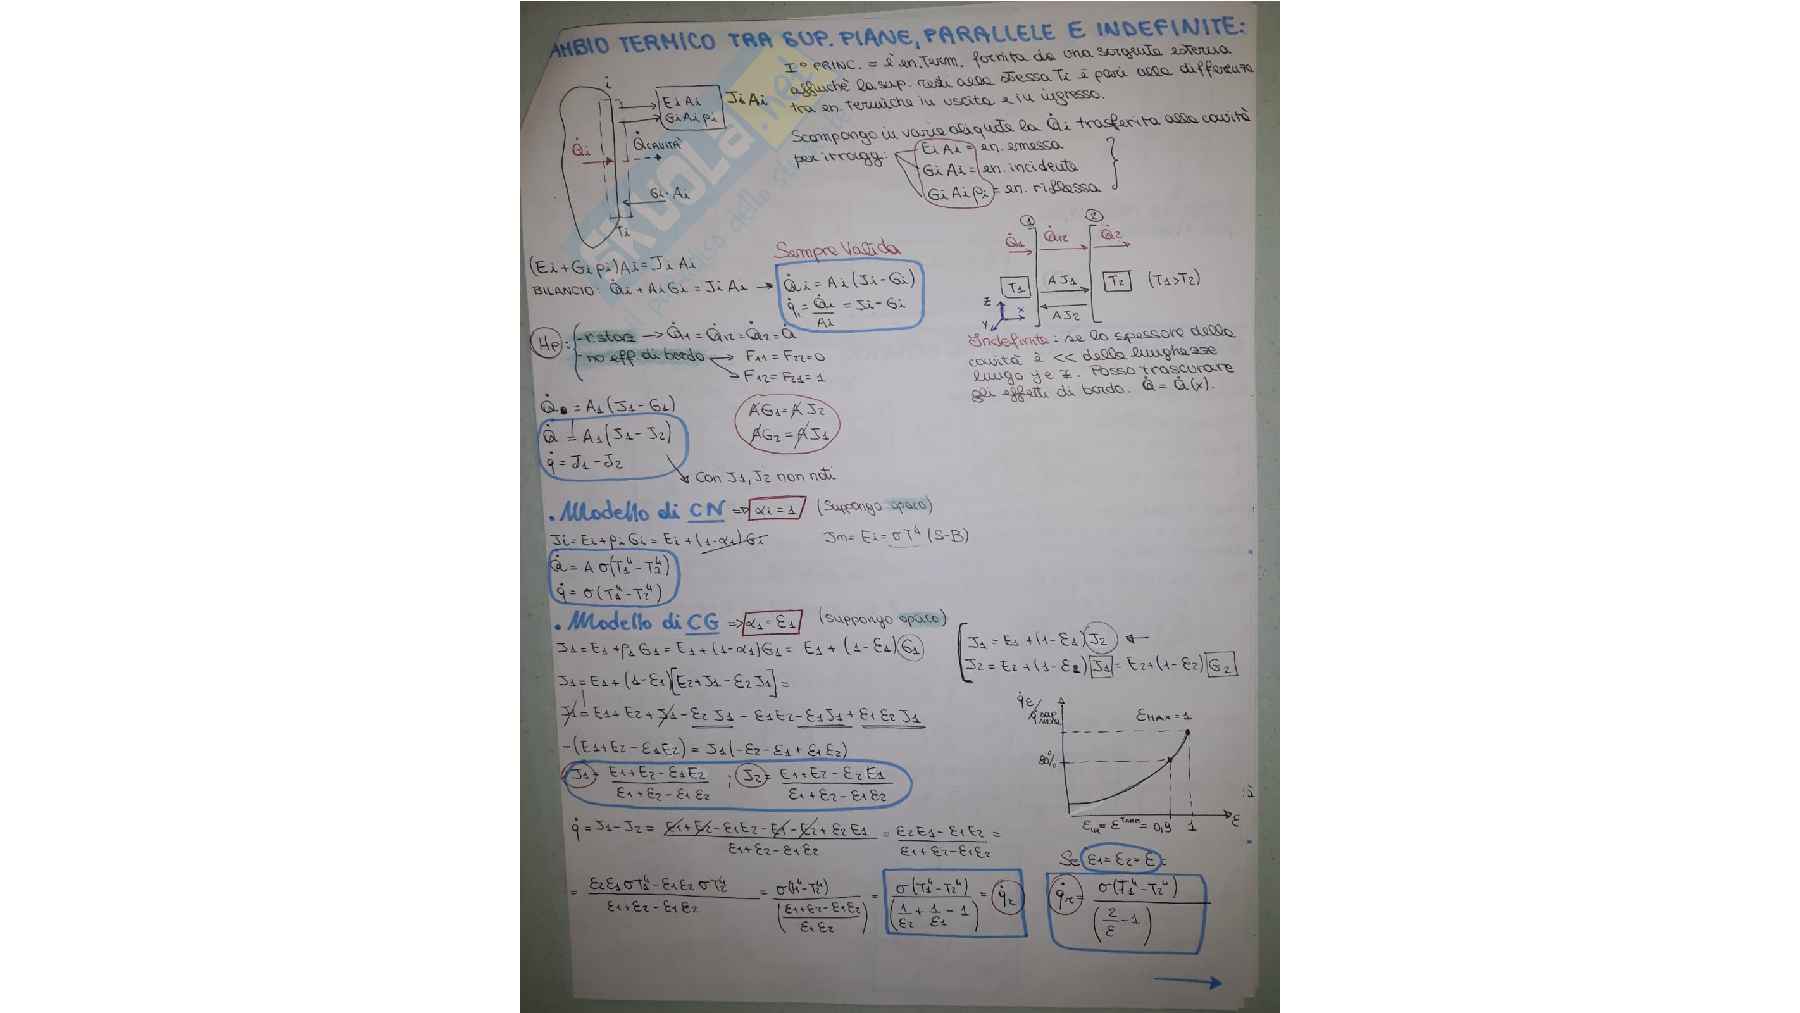 AMBIO TERMICO TRA SUP. PIANE, PARALLELE E INDEFINITE:
I° PRINC. = è en. term. fornita da una sorgente esterna
affinché la sup. resti alla stessa Ti è pari alla differenza
tra en. termiche in uscita e in ingresso.
Scompongo in varie aliquote la Q̇i trasferita alla cavità
per irragg:
EiAi = en. emessa
GiAi = en. incidente
GiAiρi = en. riflessa
i
EiAi
GiAiρi
JiAi
Q̇i
Q̇CAVITÀ
Gi·Ai
Ti
(Ei+Giρi)Ai = JiAi
BILANCIO: Q̇i + AiGi = JiAi →
Sempre Valida
Q̇i = Ai(Ji-Gi)
q̇i = Q̇i/Ai = Ji-Gi
1 2
Q̇1 Q̇12 Q̇2
T1 AJ1 T2 (T1>T2)
AJ2
Z
X
Y
Indefinite: se lo spessore della
cavità è << della lunghezza
lungo y e z. Posso trascurare
gli effetti di bordo. Q̇ = Q̇(x).
Hp:
→ Q̇1 = Q̇12 = Q̇2 = Q̇
- no eff di bordo → F11 = F22 = 0
→ F12 = F21 = 1
= A1(J1-G1)
Q̇ = A1(J1-J2)
q̇ = J1-J2
AG1 = AJ2
AG2 = AJ1
Con J1, J2 non noti
. Modello di CN => αi = 1 (Suppongo opaco)
Ji = Ei + ρiGi = Ei + (1-αi)Gi
= Ei = σT⁴ (S-B)
Q̇ = Aσ(T1⁴-T2⁴)
q̇ = σ(T1⁴-T2⁴)
. Modello di CG => α1 = ε1 (suppongo opaco)
J1 = E1 + ρ1G1 = E1 + (1-α1)G1 = E1 + (1-ε1)G1
J1 = E1 + (1-ε1)J2 ←
J2 = E2 + (1-ε2)J1 = E2 + (1-ε2)G2
J1 = E1 + (1-ε1)[E2+J1-ε2J1] =
J1 = E1 + E2 + J1 - ε2J1 - ε1E2 - ε1J1 + ε1ε2J1
-(E1+E2-ε1E2) = J1(-ε2-ε1+ε1ε2)
J1 = (E1+E2-ε1E2)/(ε1+ε2-ε1ε2) ; J2 = (E1+E2-ε2E1)/(ε1+ε2-ε1ε2)
εMAX = 1
80%
0,9 1 ε
q̇ = J1-J2 = (E1+E2-ε1E2-E1-E2+ε2E1)/(ε1+ε2-ε1ε2) = (ε2E1-ε1E2)/(ε1+ε2-ε1ε2) =
= (ε2ε1σT1⁴-ε1ε2σT2⁴)/(ε1+ε2-ε1ε2) = σ(T1⁴-T2⁴)/((ε1+ε2-ε1ε2)/(ε1ε2)) = σ(T1⁴-T2⁴)/(1/ε2+1/ε1-1) = q̇r
Se ε1 = ε2 = ε:
q̇r = σ(T1⁴-T2⁴)/(2/ε-1)